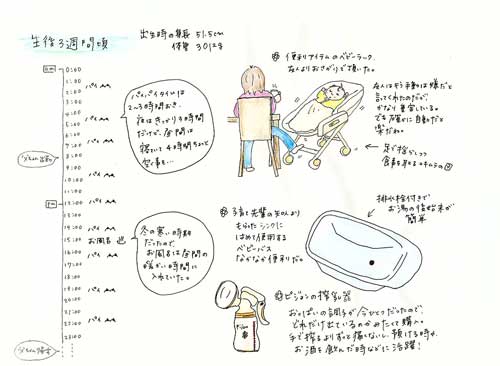 生後3週間頃
出生時の身長 51.5cm
体重 3012g
am
0:00
1:00
2:00 パイ
3:00
4:00
5:00 パイ
6:00
7:00 パイ
8:00
9:00
10:00 パイ
11:00
pm
12:00 パイ
13:00
14:00 パイ
15:00 お風呂
16:00 パイ
17:00
18:00 パイ
19:00
20:00
21:00
22:00 パイ
23:00
パイパイタイムは
2〜3時間おき。
夜はきっかり3時間
だけど、昼間は
寝ていて4時間ちょっと
空く事も…
冬の寒い時期
だったので
お風呂は昼間の
暖かい時間に
入れていた。
便利アイテムのベビーラック
友人よりおさがりで頂いた。
友人はもう手動は嫌だと
言ってくれたのだが、
かなり重宝している。
でも確かに自動だと
楽だね。
足で揺らしつつ
食事を取る
子育て先輩の知人より
もらったシンクに
はめて使用する
ベビーバス
なかなか便利だ。
排水栓付きで
お湯の後始末が
簡単
ピジョンの搾乳器
おっぱいの調子が今ひとつだったので
どれだけ出ているのかみたくて購入。
手で搾るよりずっと痛くないし、預ける時や
お酒を飲んだ時などに活躍!